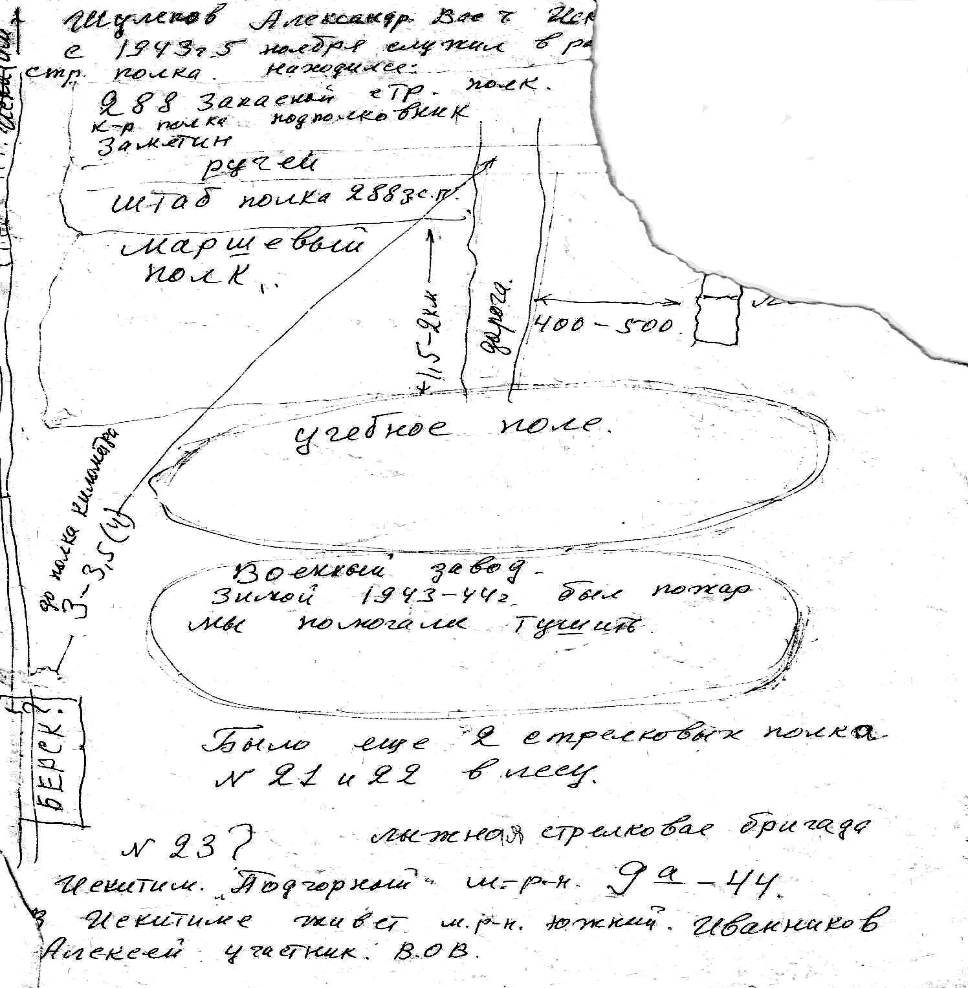 Шулепов Александр Вас ч Иск
с 1943г. 5 ноября служил в
стр. полка. находился:
288 Запасной стр. полк.
к-р полка подполковник
Заметин
ручей
штаб полка 288 з.с.п.
маршевый
полк..
1,5-2 км
дорога.
400-500.
учебное поле.
до полка километра
3-3,5 (4)
Военный завод.
Зимой 1943-44г. был пожар
мы помогали тушить
БЕРСК?
Было еще 2 стрелковых полка
N 21 и 22 в лесу.
N 23?
лыжная стрелковая бригада
Искитим. "Подгорный" м-р-н. 9а-44.
Искитиме живет м.р-н. Южный. Иванников
Алексей участник. В.О.В.